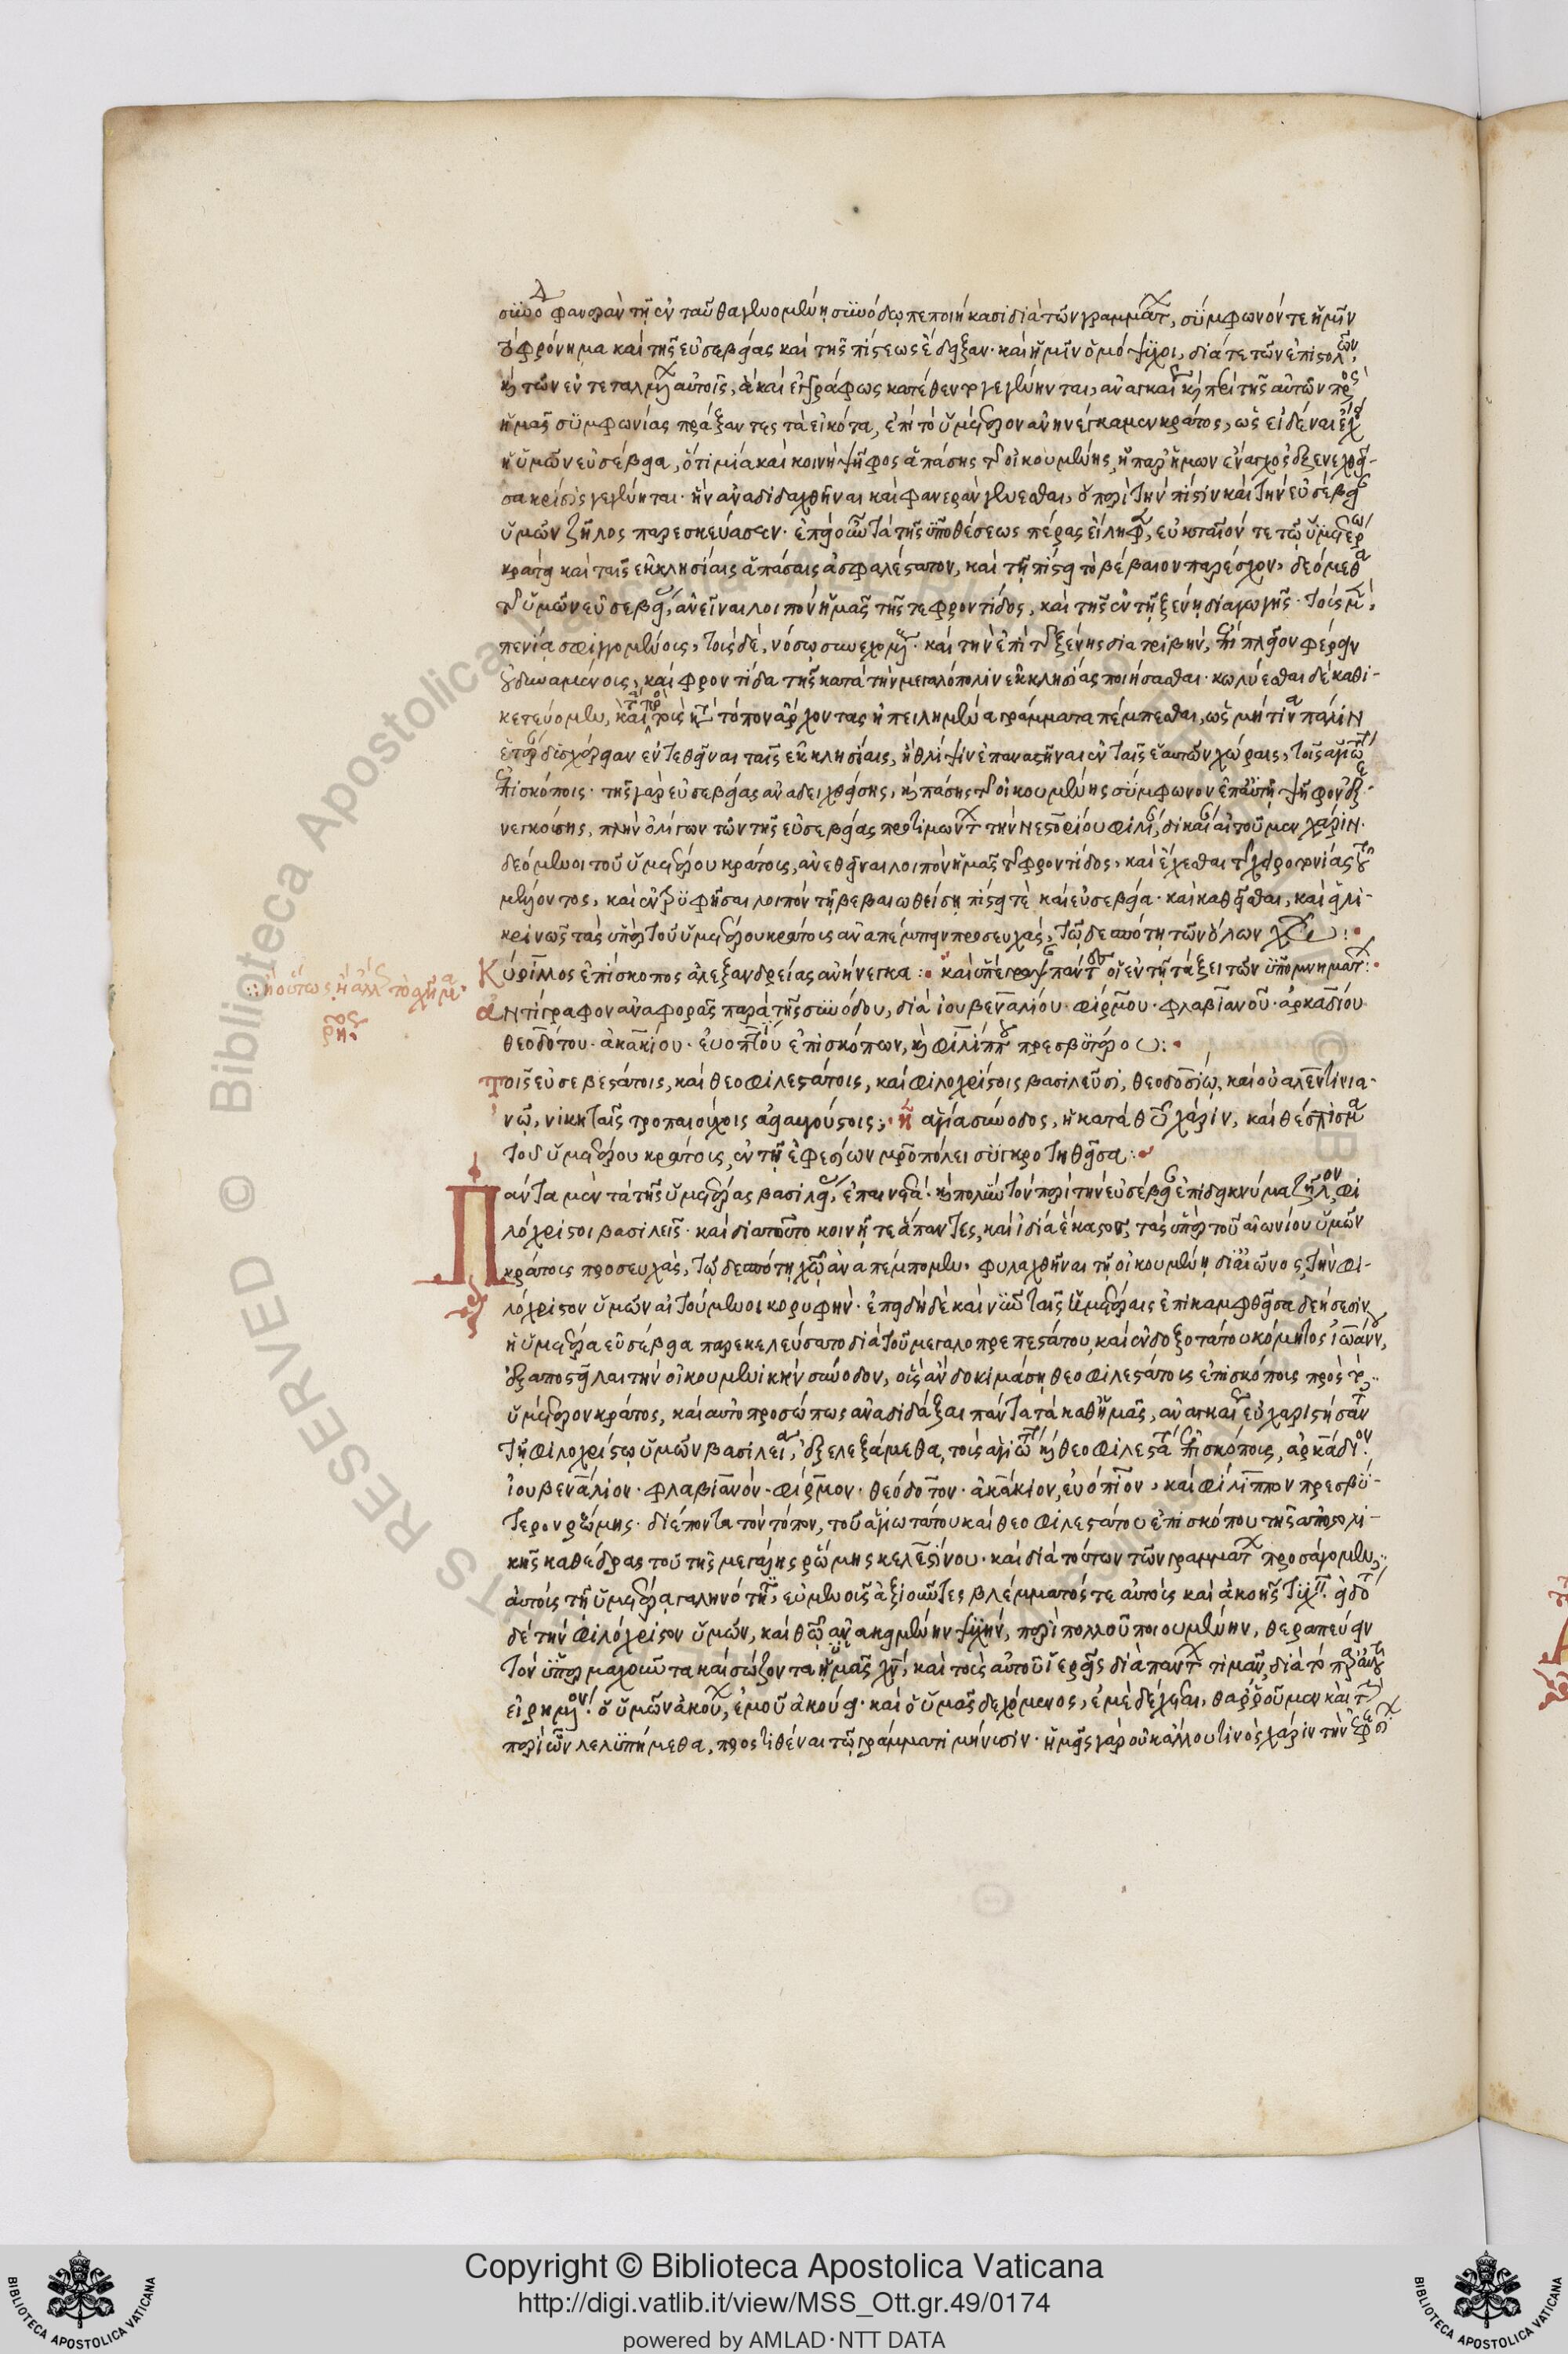 συνόδ φανερὰν τῇ ἐν ταῦθα γενομένη συνόδω πεποιήκασι διὰ τῶν γραμμάτ, σύμφωνόν τε ἡμῖν
τὸ φρόνημα καὶ τῆς εὐσεβείας καὶ τῆς πίστεως ἔδειξαν· καὶ ἡμῖν ὁμόψυχοι, διά τε τῶν ἐπιστολῶν,
καὶ τῶν ἐν τεταλμένων αὐτοῖς, ἃ καὶ ἐγγράφως κατέθεντο γεγένηνται, ἀναγκαῖ καὶ περὶ τῆς αὐτῶν πρὸς
ἡμᾶς συμφωνίας πράξαντες τὰ εἰκότα, ἐπὶ τὸ ὑμέτερον ἀνηνέγκαμεν κράτος, ὡς εἰδέναι ἔχ
ἡ ὑμῶν εὐσέβεια, ὅτι μία καὶ κοινὴ ψῆφος ἁπάσης τῆς οἰκουμένης, ἡ παρ ἡμων ἔναγχος ἐξενεχθεῖ-
σα κρίσις γεγένηται· ἣν ἀναδιδαχθῆναι καὶ φανερὰν γενέσθαι, ὁ περὶ τὴν πίστιν καὶ τὴν εὐσέβει
ὑμῶν ζῆλος παρεσκεύασεν· ἐπεὶ οὖν τὰ τῆς ὑποθέσεως πέρας εἴληφ, εὐκταῖόν τε τῷ ὑμετέρω
κράτει καὶ ταῖς ἐκκλησίαις ἁπάσαις ἀσφαλέστατον, καὶ τῇ πίστει τὸ βέβαιον παρέσχον, δεόμεθα
τῆς ὑμῶν εὐσεβεί, ἀνεῖναι λοιπὸν ἡμᾶς τῆς τε φροντίδος, καὶ τῆς ἐν τῇ ξένη διαγωγῆς· τοῖς μὲν,
πενία σφιγγομένοις, τοῖς δὲ, νόσω συνεχομέν· καὶ τὴν ἐπὶ τῆς ξένης διατριβὴν, ἐπὶ πλεῖον φέρειν
οὐ δυναμένοις, καὶ φροντίδα τῆς κατὰ τὴν μεγαλόπολιν ἐκκλησίας ποιήσασθαι· κωλύεσθαι δὲ καθι-
κετεύομεν, καὶ τὰ πρὸς τοὺς κατὰ τόπον ἄρχοντας ἠπειλημένα γράμματα πέμπεσθαι, ὡς μή τινα πάλιν
ἑτέρ δυσχέρειαν ἐντεθῆναι ταῖς ἐκκλησίαις, ἢ θλίψιν ἐπαναστῆναι ἐν ταῖς ἑαυτῶν χώραις, τοῖς ἁγιωτ
ἐπισκόποις· τῆς γὰρ εὐσεβείας ἀναδειχθείσης, καὶ πάσης τῆς οἰκουμένης σύμφωνον ἐπ αὐτῇ ψῆφον ἐξε-
νεγκούσης, πλὴν ὀλίγων τῶν τῆς εὐσεβείας προτιμώντ τὴν Νεστορίου φιλί, δικαί αἰτοῦμεν χάριν·
δεόμενοι τοῦ ὑμετέρου κράτους, ἀνεθῆναι λοιπὸν ἡμᾶς τῆς φροντίδος, καὶ ἔχεσθαι τῆς χειροτονίας τοῦ
μέλλοντος, καὶ ἐντρυφῆσαι λοιπὸν τῇ βεβαιωθείση πίστει τὲ καὶ εὐσεβεία· καὶ καθησθαι, καὶ εἰλι-
κρίνως τὰς ὑπὲρ τοῦ ὑμετέρου κράτους ἀναπέμπειν προσευχὰς, τῷ δεσπότη τῶν ὅλων Χῶ:·
Κύριλλος ἐπίσκοπος ἀλεξανδρείας ἀνήνεγκα:· καὶ ὑπέγραψ πάντ οἱ ἐν τῇ τάξει τῶν ὑπομνημάτ:·
.:. ἢ οὕτως, ἢ ἀλλ
Ἀντίγραφον ἀναφορᾶς παρὰ τῆς συνόδου, διὰ ἰουβεναλίου· φίρμου· φλαβιανοῦ· ἀρκαδίου
θεοδότου· ἀκακίου· εὐοπτίου ἐπισκόπων, καὶ φιλίππου πρεσβυτέρου:·
Τοῖς εὐσεβεστάτοις, καὶ θεοφιλεστάτοις, καὶ φιλοχρίστοις βασιλεῦσι, θεοδοσίω, καὶ οὐαλεντινια-
νῷ, νικηταῖς τροπαιούχοις ἀεὶ αὐγούστοις; ἡ ἁγία σύνοδος, ἡ κατὰ θῦ χάριν, καὶ θέσπισμα
τοῦ ὑμετέρου κράτους, ἐν τῇ ἐφεσίων μητροπόλει συγκροτηθεῖσα:·
Πάντα μὲν τὰ τῆς ὑμετέρας βασιλεί, ἐπαινετά· καὶ πολὺν τὸν περὶ τὴν εὐσέβει ἐπιδεικνύμενα ζῆλον, φι
λόχριστοι βασιλεῖς· καὶ διατοῦτο κοινῇ τε ἅπαντες, καὶ ἰδία ἕκαστος, τὰς ὑπὲρ τοῦ αἰωνίου ὑμῶν
κράτους προσευχὰς, τῷ δεσπότη χῶ ἀναπέμπομεν· φυλαχθῆναι τῇ οἰκουμένη δι αἰῶνος, τὴν φι-
λόχριστον ὑμῶν αἰτούμενοι κορυφήν· ἐπειδὴ δὲ καὶ νῦν ταῖς ἡμετέραις ἐπικαμφθεῖσα δεήσεσιν
ἡ ὑμετέρα εὐσέβεια παρεκελεύσατο διὰ τοῦ μεγαλοπρεπεστάτου, καὶ ἐνδοξοτάτου κόμητος ἰωάννου,
ἐξαποστεῖλαι τὴν οἰκουμενικὴν σύνοδον, οἷς ἂν δοκιμάση θεοφιλεστάτοις ἐπισκόποις πρὸς τὸ
ὑμέτερον κράτος, καὶ αὐτοπροσώπως ἀναδιδάξαι πάντα τὰ καθ ἡμᾶς, ἀναγκαί εὐχαριστήσαντ
τῇ φιλοχρίστω ὑμῶν βασιλεία, ἐξελεξάμεθα, τοὺς ἁγιωτ καὶ θεοφιλεστάτ ἐπισκόπους, ἀρκάδιον.
ἰουβενάλιον· φλαβιανόν· φίρμον· θεόδοτον· ἀκάκιον, εὐόπτιον, καὶ φίλιππον πρεσβύ-
τερον ῥώμης· διέποντα τὸν τόπον, τοῦ ἁγιωτάτου καὶ θεοφιλεστάτου ἐπισκόπου τῆς ἀποστολι-
κῆς καθέδρας τοῦ τῆς μεγάλης ῥώμης κελεστίνου· καὶ διὰ τούτων τῶν γραμμάτ προσάγομεν,
αὐτοὺς τῇ ὑμετέρα γαληνότητι, εὐμενοῖς ἀξιοῦντες βλέμματός τε αὐτοὺς καὶ ἀκοῆς τυχ. εἰδότ
δὲ τὴν φιλόχριστον ὑμῶν, καὶ θῶ ἀνακειμένην ψυχὴν, περὶ πολλοῦ ποιουμένην, θεραπεύειν
τὸν ὑπερμαχοῦντα καὶ σώζοντα ὑμᾶς χν, καὶ τοὺς αὐτοῦ ἱερεῖς διὰ παντ τιμᾶν, διὰ τὸ παρ αὐτοῦ
εἰρημένον. ὁ ὑμῶν ἀκού, ἐμοῦ ἀκούει· καὶ ὁ ὑμᾶς δεχόμενος, ἐμὲ δέχεται, θαρροῦμεν καὶ τὴν
περὶ ὧν λελυπήμεθα, προστιθέναι τῷ γράμματι μήνυσιν· ἡμεῖς γὰρ οὐκ ἄλλου τινὸς χάριν τὴν
Copyright © Biblioteca Apostolica Vaticana
http://digi.vatlib.it/view/MSS_Ott.gr.49/0174
powered by AMLAD·NTT DATA
BIBLIOTECA APOSTOLICA VATICANA
BIBLIOTECA APOSTOLICA VATICANA